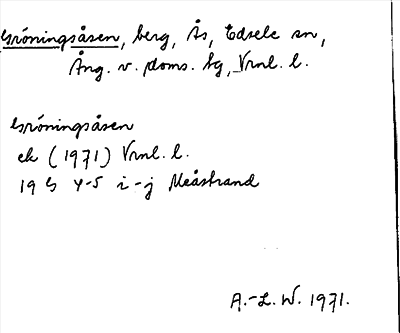 Gröningsåsen, berg, Ås, Edsele sn,
Ång. v. doms. bg, Vrnl. l.
Gröningsåsen
ek (1971) Vrnl. l.
19 G 4-5 i-j Meåstrand
A.-L. W. 1971.